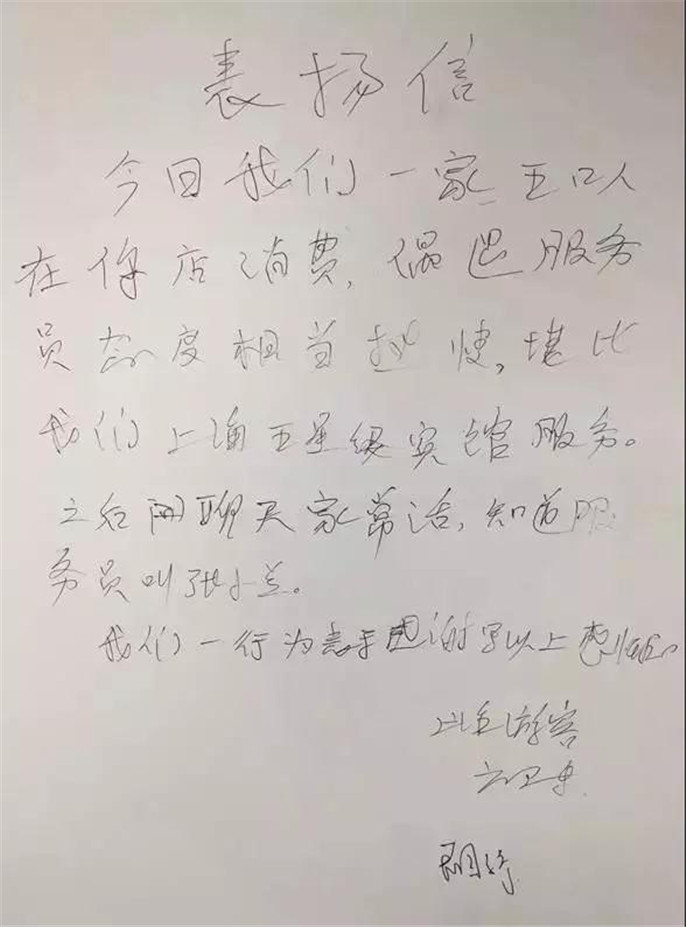 表扬信
今回我们一家五口人
在你店消费,偶遇服务
员态度相当愉快,堪比
我们上海五星级宾馆服务。
之后闲聊天家常话,知道服
务员叫张小兰。
我们一行为表示感谢写以上
上海游客